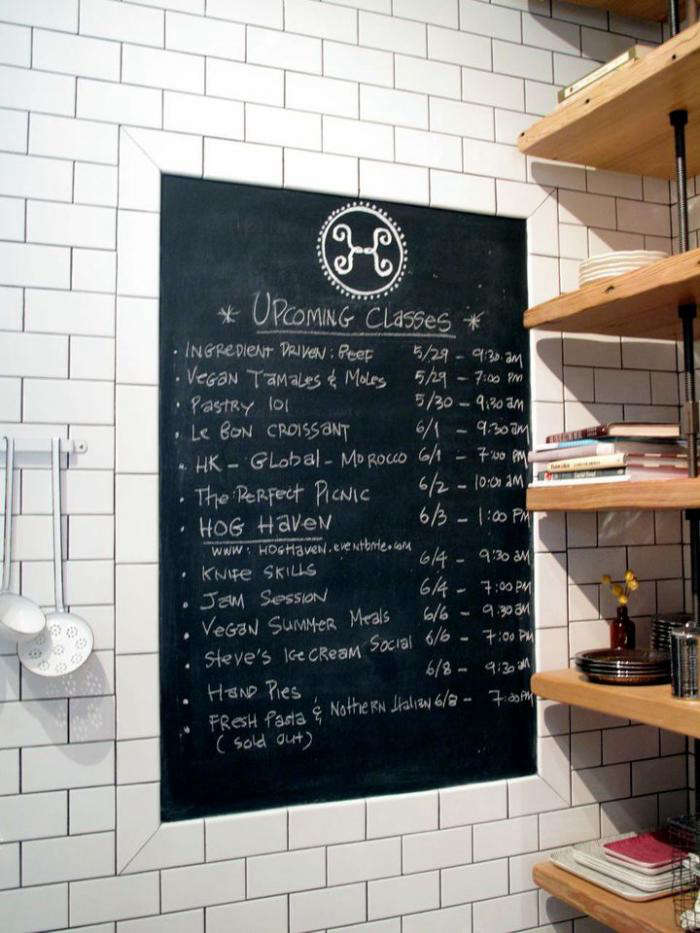 * UPCOMING CLASSES *
· INGREDIENT DRIVEN: BEEF 5/29 - 9:30 am
· VEGAN TAMALES & MOLES 5/29 - 7:00 PM
· PASTRY 101 5/30 - 9:30 am
· LE BON CROISSANT 6/1 - 9:30 am
· HK - GLOBAL - MOROCCO 6/1 - 7:00 PM
· THE PERFECT PICNIC 6/2 - 10:00 am
· HOG HAVEN 6/3 - 1:00 PM
www: HOGHAVEN.eventbrite.com
· KNIFE SKILLS 6/4 - 9:30 am
· JAM SESSION 6/4 - 7:00 PM
· VEGAN SUMMER MEALS 6/6 - 9:30 am
· STEVE'S ICE CREAM SOCIAL 6/6 - 7:00 PM
· HAND PIES 6/8 - 9:30 am
· FRESH Pasta & Nothern Italian 6/8 - 7:00 PM
(Sold out)